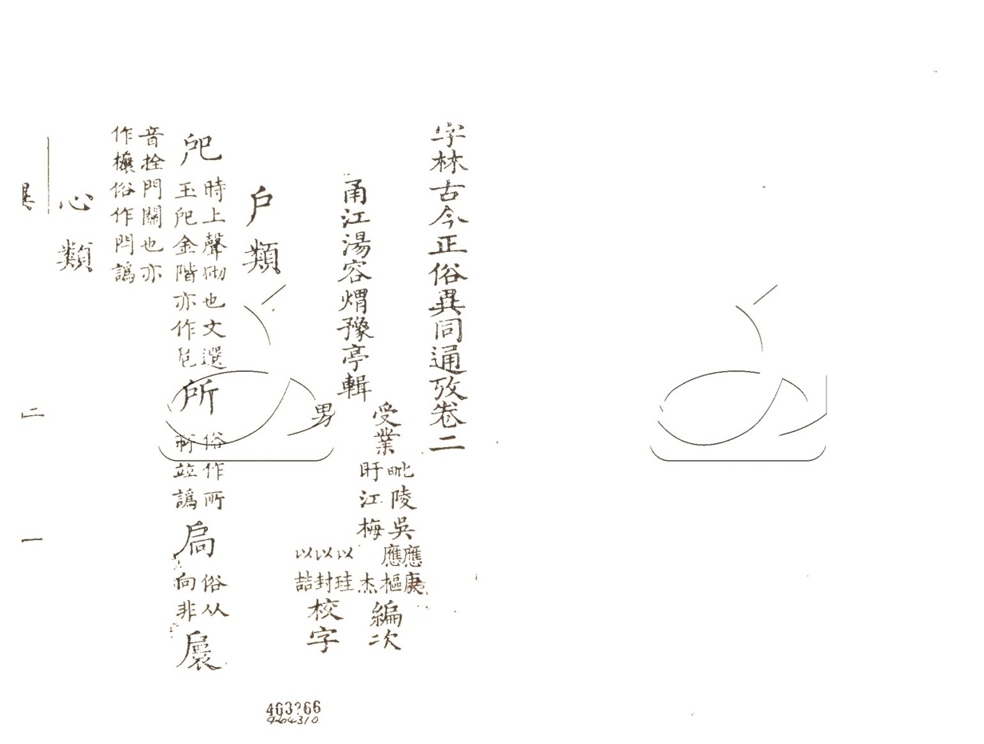 字林古今正俗異同通攷卷二
甬江湯容煟豫亭輯
受業
毗陵吳應庚
應樞
盱江梅杰
編次
男
以珪
以封
以詰
校字
戶類
戺
時上聲砌也文選
玉戺金階亦作
所
俗作
並譌
扃
俗从
向非
音拴門關也亦
作櫦俗作閂譌
心類
二
一